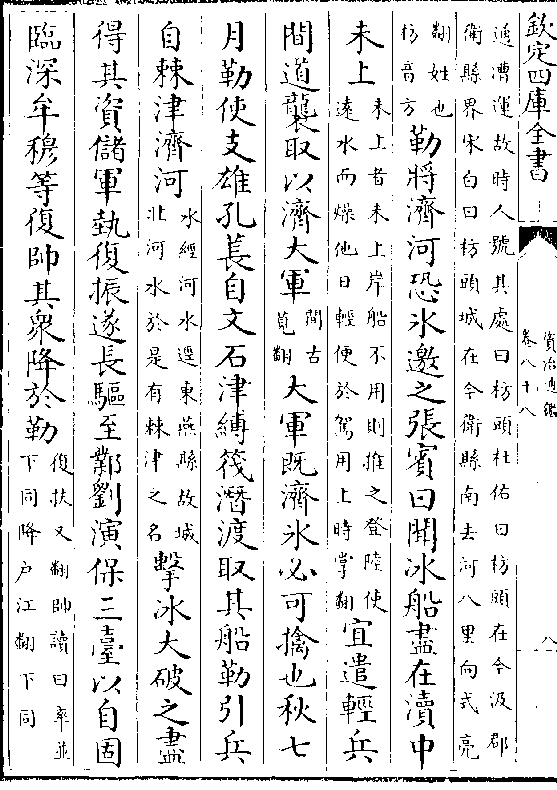 欽定四庫全書
資治通鑑
卷八十八
八
通漕運故時人號其處曰枋頭杜佑曰枋頭在今汲郡
衛縣界宋白曰枋頭城在今衛縣南去河八里向式亮
翻姓也
枋音方
勒將濟河恐氷邀之張賓曰聞氷船盡在瀆中
未上
未上者未上岸船不用則推之登陸使
遠水而燥他日輕便於駕用上時掌翻
宜遣輕兵
間道襲取以濟大軍
間古
莧翻
大軍既濟氷必可擒也秋七
月勒使支雄孔萇自文石津縛筏潛渡取其船勒引兵
自棘津濟河
水經河水逕東燕縣故城
北河水於是有棘津之名
擊氷大破之盡
得其資儲軍埶復振遂長驅至鄴劉演保三臺以自固
臨深牟穆等復帥其衆降於勒
復扶又翻帥讀曰率並
下同降户江翻下同